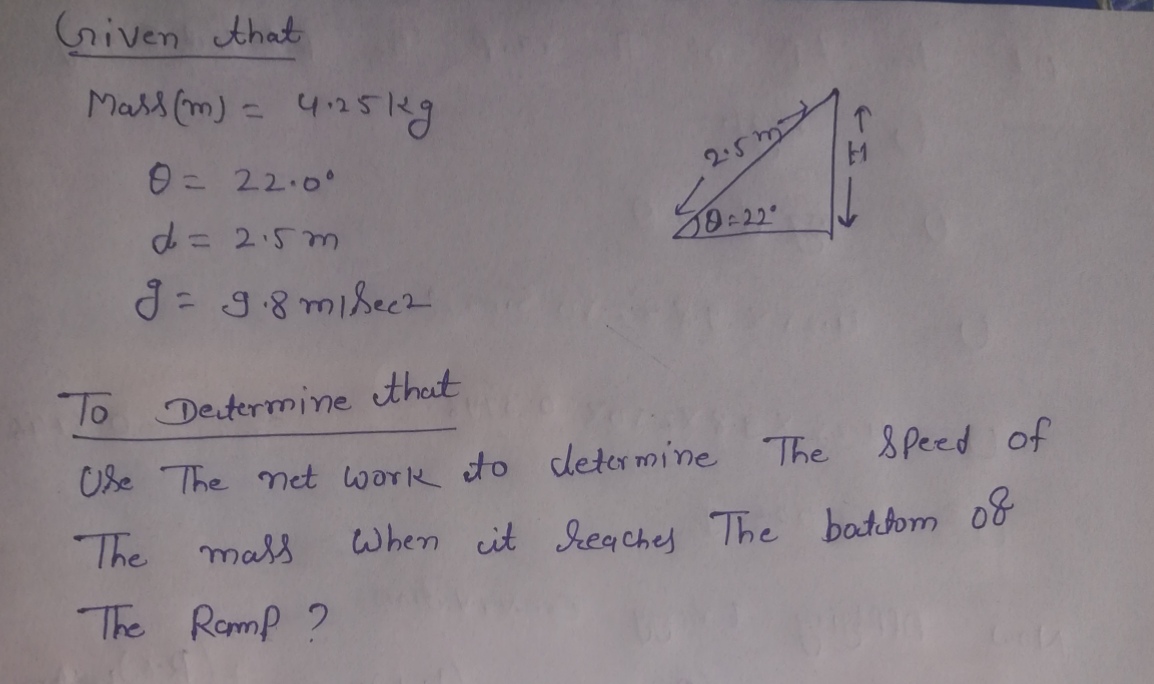 Given that
Mass(m) = 4.25kg
θ = 22.0°
d = 2.5 m
g = 9.8 m/sec2
2.5 m
H
θ=22°
To Determine that
Use The net work to determine The speed of
The mass when it reaches The bottom of
The Ramp ?